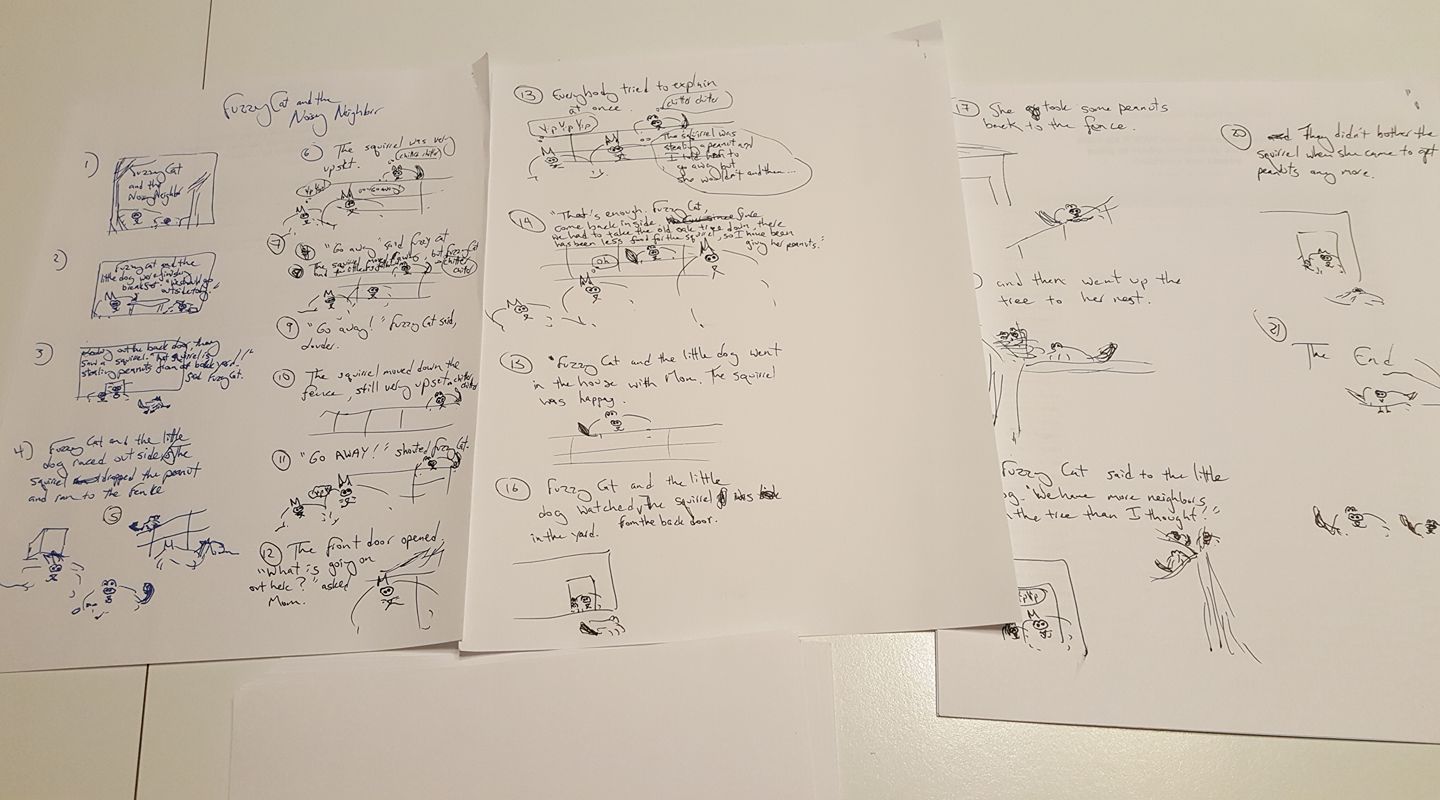 Fuzzy Cat and the
Noisy Neighbor
1)
Fuzzy Cat
and the
Noisy Neighbor
2)
Fuzzy Cat and the
little dog were finishing
breakfast. "We should go
outside today."
3)
out the back door, they
saw a squirrel. "That squirrel is
stealing peanuts from our back yard!"
said Fuzzy Cat.
4)
Fuzzy Cat and the little
dog raced outside. The
squirrel dropped the peanut
and ran to the fence
5
6 The squirrel was very
upset.
chitter chitter
Yip Yip
7 "Go away" said Fuzzy Cat
chitter
chitter
9 "Go away!" Fuzzy Cat said,
louder.
10 The squirrel moved down the
fence, still very upset.
chitter
chitter
11 "GO AWAY!" shouted Fuzzy Cat.
12 The front door opened,
"What is going on
out here?" asked
Mom.
13 Everybody tried to explain
at once.
chitter chitter
Yip Yip Yip
The squirrel was
stealing a peanut and
I told her to
go away but
she wouldn't and then...
14 "That's enough, Fuzzy Cat,
come back inside. Since
we had to take the old oak tree down, there
has been less food for the squirrel, so I have been
giving her peanuts."
Oh
15 Fuzzy Cat and the little dog went
in the house with Mom. The squirrel
was happy.
16 Fuzzy Cat and the little
dog watched the squirrel
from the back door.
in the yard.
17 She took some peanuts
back to the fence.
and then went up the
tree to her nest.
Fuzzy Cat said to the little
"We have more neighbors
the tree than I thought!"
20 They didn't bother the
squirrel when she came to get
peanuts any more.
21
The End